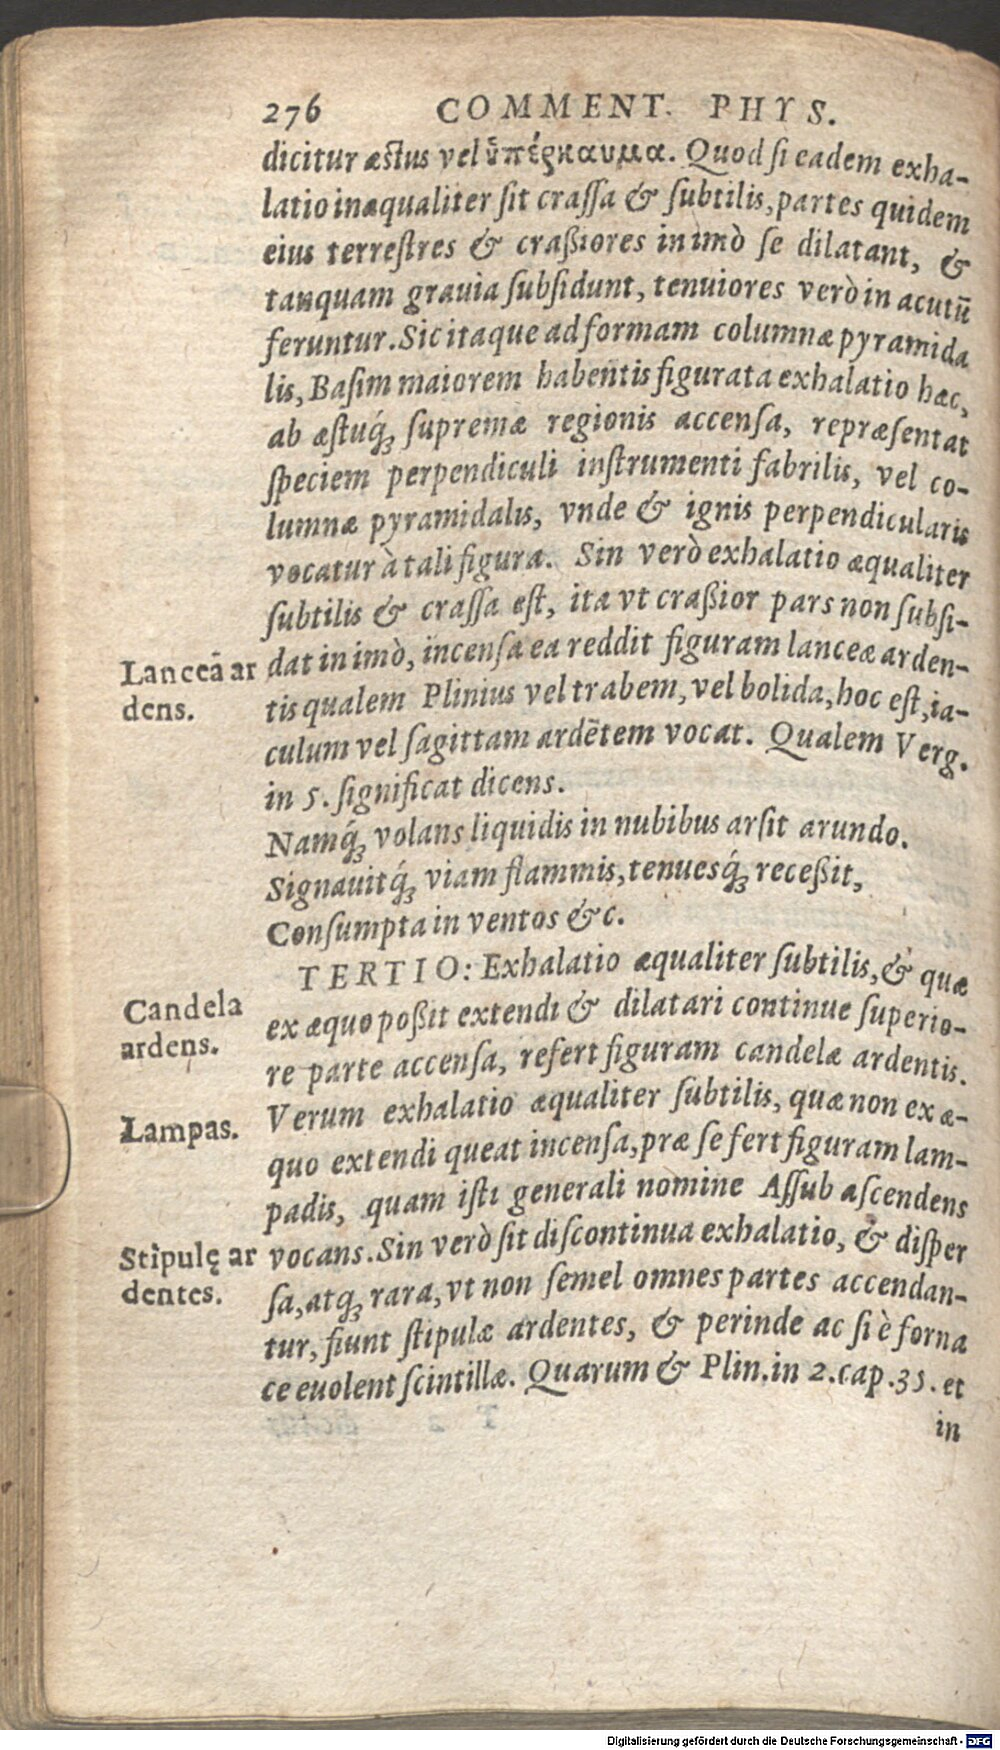 276 COMMENT. PHYS.
dicitur æstus vel ὑπέρκαυμα. Quod si eadem exha-
latio inæqualiter sit crassa & subtilis, partes quidem
eius terrestres & craßiores in imò se dilatant, &
tanquam grauia subsidunt, tenuiores verò in acutū
feruntur. Sic itaque ad formam columnæ pyramida
lis, Basim maiorem habentis figurata exhalatio hæc,
ab æstuq́ꝫ supremæ regionis accensa, repræsentat
speciem perpendiculi instrumenti fabrilis, vel co-
lumnæ pyramidalis, vnde & ignis perpendicularis
vocatur à tali figura. Sin verò exhalatio æqualiter
subtilis & crassa est, ita vt craßior pars non subsi-
Lanceā ar
dens.
dat in imò, incensa ea reddit figuram lanceæ arden-
tis qualem Plinius vel trabem, vel bolida, hoc est, ia-
culum vel sagittam ardētem vocat. Qualem Verg.
in 5. significat dicens.
Namq́ꝫ volans liquidis in nubibus arsit arundo.
Signauitq́ꝫ viam flammis, tenuesq́ꝫ receßit,
Consumpta in ventos &c.
TERTIO: Exhalatio æqualiter subtilis, & quæ
Candela
ardens.
ex æquo poßit extendi & dilatari continue superio-
re parte accensa, refert figuram candelæ ardentis.
Lampas.
Verum exhalatio æqualiter subtilis, quæ non ex æ-
quo extendi queat incensa, præ se fert figuram lam-
padis, quam isti generali nomine Assub ascendens
Stipulę ar
dentes.
vocans. Sin verò sit discontinua exhalatio, & disper
sa, atqꝫ rara, vt non semel omnes partes accendan-
tur, fiunt stipulæ ardentes, & perinde ac si è forna
ce euolent scintillæ. Quarum & Plin. in 2. cap. 35. et
in
Digitalisierung gefördert durch die Deutsche Forschungsgemeinschaft - DFG